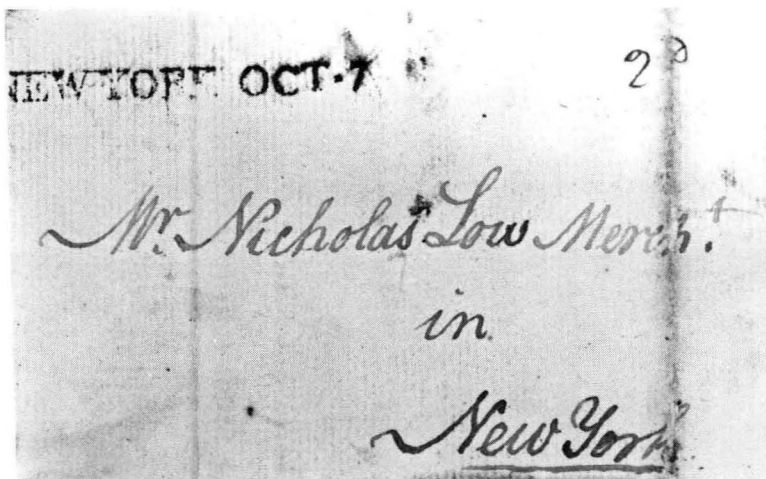 NEW YORK OCT·7
2d
Mr. Nicholas Low Merch.t
in
New York